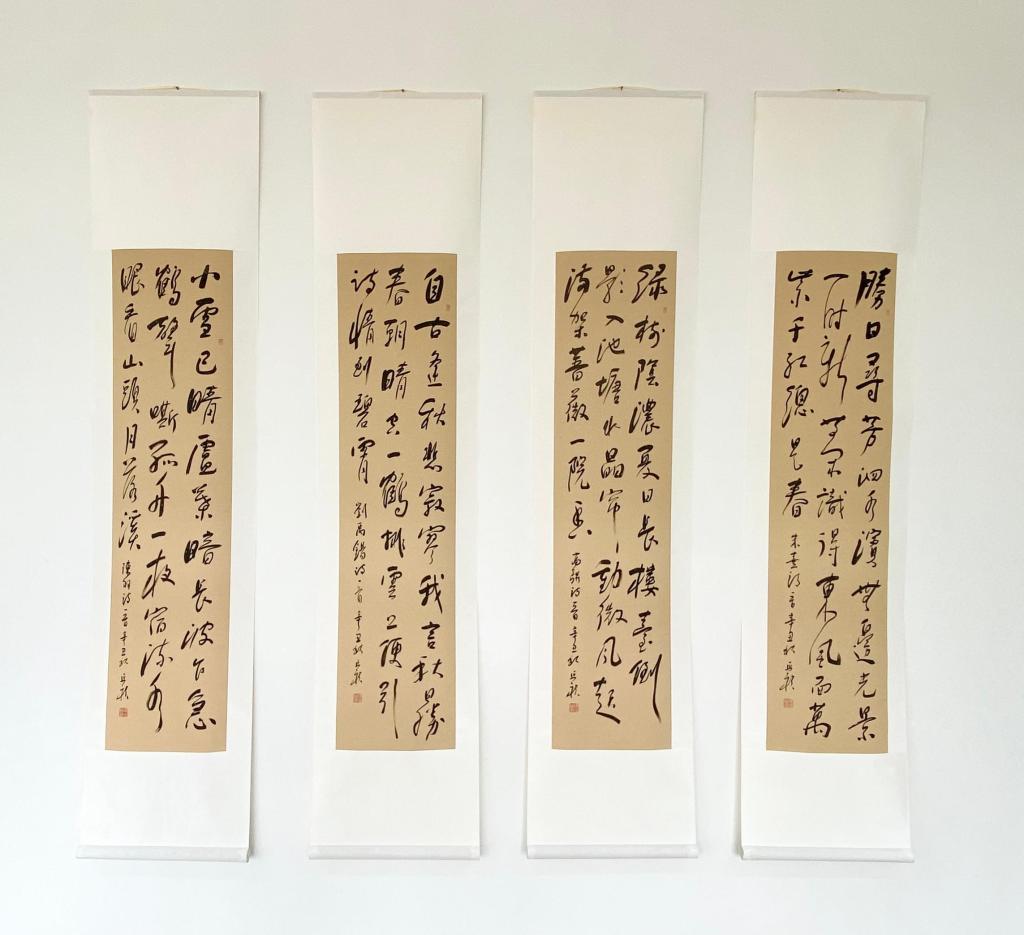 勝日尋芳泗水濱無邊光景
一时新等閒識得東風面萬
紫千紅總是春
朱熹詩一首辛丑秋
綠樹陰濃夏日長樓臺倒
影入池塘水晶帘動微風起
滿架薔薇一院香
高駢詩一首辛丑秋
自古逢秋悲寂寥我言秋日勝
春朝晴空一鶴排雲上便引
詩情到碧霄
劉禹錫詩一首辛丑秋
小雪已晴廬葉暗長波乍急
鶴聲嘶孤舟一夜宿流水
眼看山頭月落溪
陳羽詩一首辛丑秋